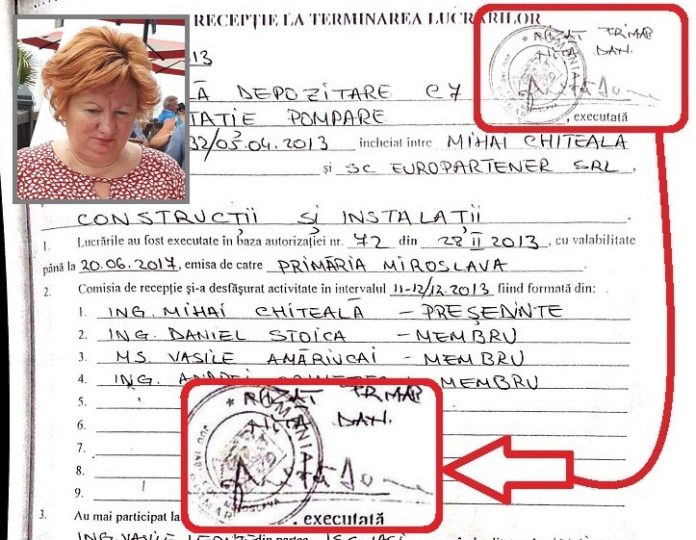 RECEPȚIE LA TERMINAREA LUCRĂRILOR
VIZAT PRIMAR
NIȚĂ DAN.
ROMÂNIA
13
Ă DEPOZITARE C7
TAȚIE POMPARE , executată
32/05.04.2013 încheiat între MIHAI CHITEALA
și SC EUROPARTENER SRL.
CONSTRUCȚII ȘI INSTALAȚII
1. Lucrările au fost executate în baza autorizației nr. 72 din 28 II 2013, cu valabilitate
până la 20.06.2017, emisa de catre PRIMĂRIA MIROSLAVA
2. Comisia de recepție și-a desfășurat activitate în intervalul 11-12/12.2013 fiind formată din:
1. ING. MIHAI CHITEALĂ – PREȘEDINTE
2. ING. DANIEL STOICA – MEMBRU
3. MS. VASILE AMĂRIUCAI – MEMBRU
4. ING. MEMBRU
5.
6.
7.
8.
9.
VIZAT PRIMAR
NIȚĂ DAN.
ROMÂNIA
, executată
3. Au mai participat la
ING. VASILE din partea ISC IAȘI